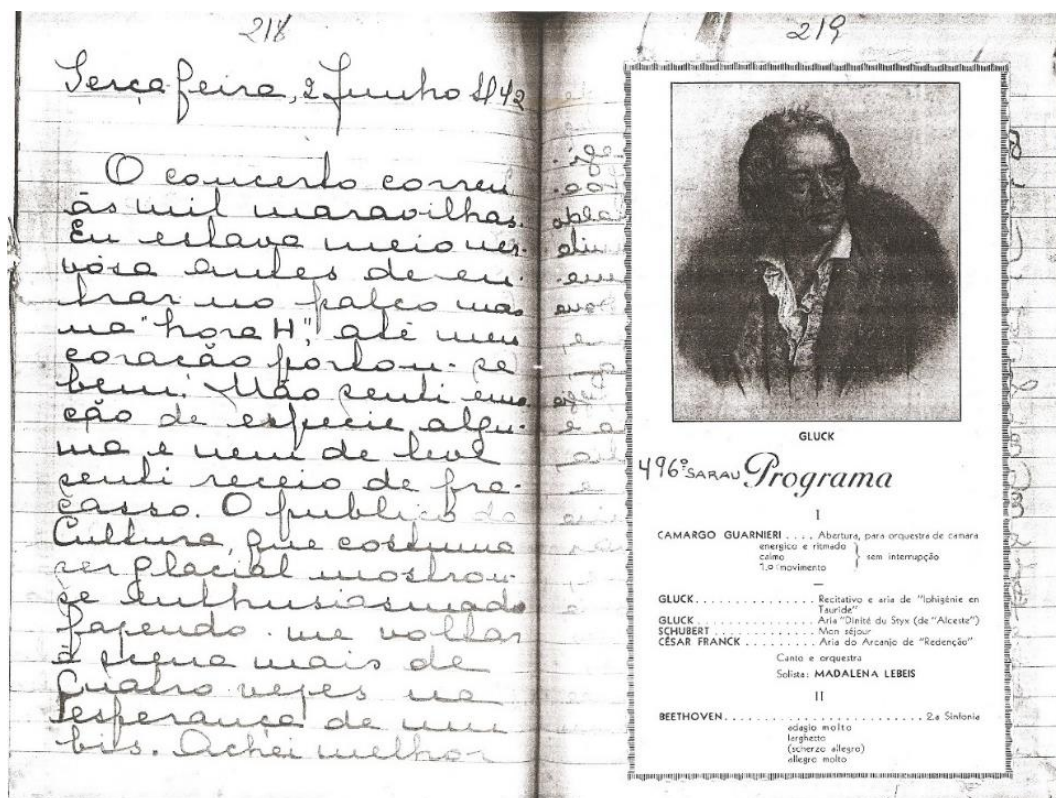 218
Terça feira, 2 Junho 1942
O concerto correu
ás mil maravilhas.
Eu estava meio ner-
vosa antes de en-
trar no palco mas
na "hora H", até meu
coração portou-se
bem. Não senti emo-
ção de especie algu-
ma e nem de leve
senti receio de fra-
casso. O publico do
Cultura, que costuma
ser glacial mostrou-
se enthusiasmado
fazendo-me voltar
á scena mais de
quatro vezes na
esperança de um
bis. Achei melhor
219
GLUCK
496º SARAU Programa
I
CAMARGO GUARNIERI . . . . Abertura, para orquestra de camara
energico e ritmado
calmo
1.o movimento
} sem interrupção
—
GLUCK . . . . . . . . . . . . . . Recitativo e aria de "Iphigénie en
Tauride"
GLUCK . . . . . . . . . . . . . . Aria "Dieité du Styx (de "Alceste")
SCHUBERT . . . . . . . . . . . Mon séjour
CÉSAR FRANCK . . . . . . . . . Aria do Arcanjo de "Redenção"
Canto e orquestra
Solista: MADALENA LEBEIS
II
BEETHOVEN . . . . . . . . . . . . . . . . . . . . . . 2.a Sinfonia
adagio molto
larghetto
(scherzo allegro)
allegro molto